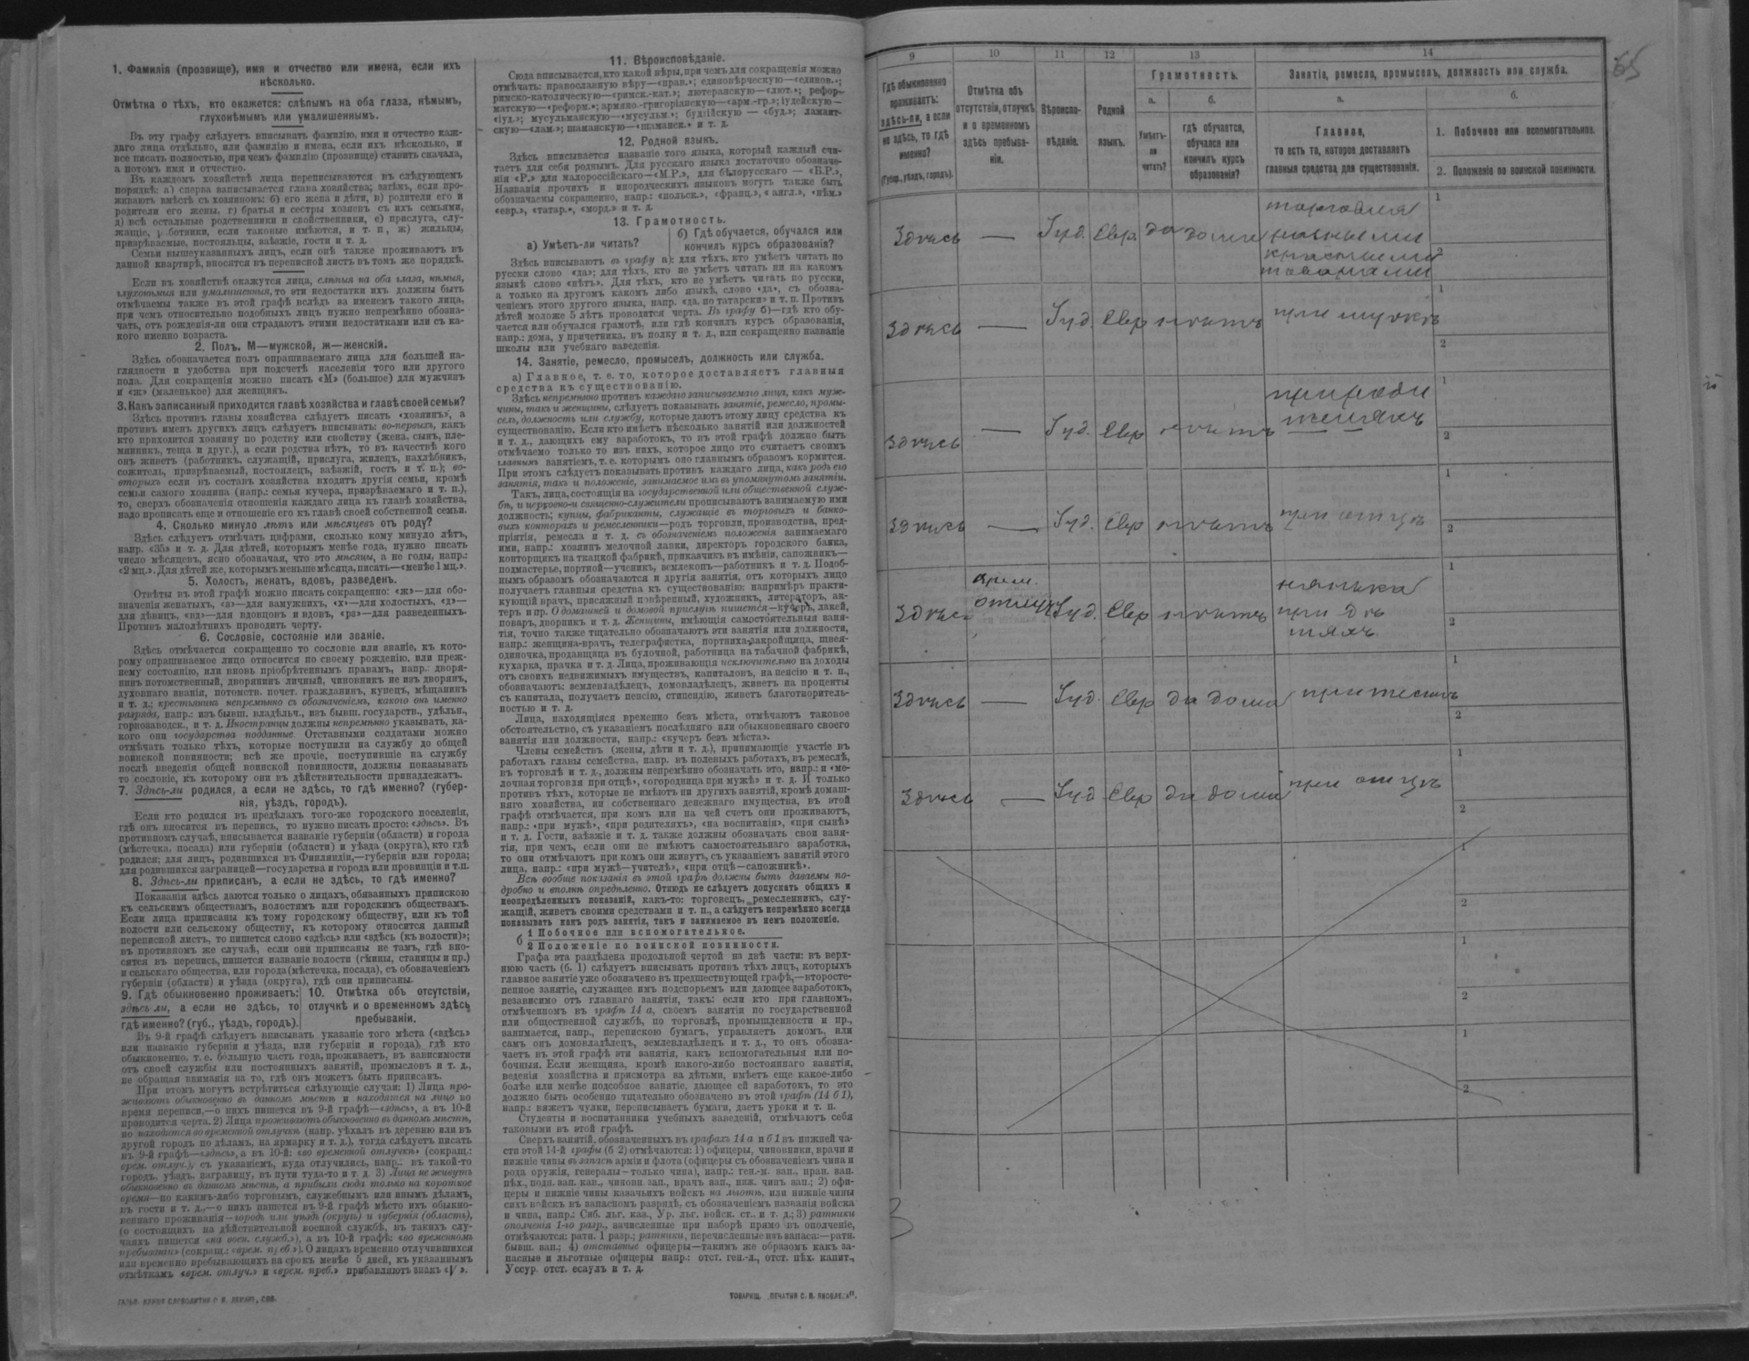 1. Фамилія (прозвище), имя и отчество или имена, если ихъ
нѣсколько.
Отмѣтка о тѣхъ, кто окажется: слѣпымъ на оба глаза, нѣмымъ,
глухонѣмымъ или умалишеннымъ.
Въ эту графу слѣдуетъ вписывать фамилію, имя и отчество каж-
даго лица отдѣльно, или фамилію и имена, если ихъ нѣсколько, и
все писать полностью, при чемъ фамилію (прозвище) ставить сначала,
а потомъ имя и отчество.
Въ каждомъ хозяйствѣ лица переписываются въ слѣдующемъ
порядкѣ: а) сперва записывается глава хозяйства; затѣмъ, если про-
живаютъ вмѣстѣ съ хозяиномъ: б) его жена и дѣти, в) родители его и
родители его жены, г) братья и сестры хозяевъ съ ихъ семьями,
д) всѣ остальные родственники и свойственники, е) прислуга, слу-
жащіе, работники, если таковые имѣются, и т. п., ж) жильцы,
призрѣваемые, постояльцы, заѣзжіе, гости и т. д.
Семьи вышеуказанныхъ лицъ, если онѣ также проживаютъ въ
данной квартирѣ, вносятся въ переписной листъ въ томъ же порядкѣ.
Если въ хозяйствѣ окажутся лица, слѣпыя на оба глаза, нѣмыя,
глухонѣмыя или умалишенныя, то эти недостатки ихъ должны быть
отмѣчаемы также въ этой графѣ вслѣдъ за именемъ такого лица,
при чемъ относительно подобныхъ лицъ нужно непремѣнно обозна-
чать, отъ рожденія-ли они страдаютъ этими недостатками или съ ка-
кого именно возраста.
2. Полъ. М—мужской, ж—женскій.
Здѣсь обозначается полъ опрашиваемаго лица для большей на-
глядности и удобства при подсчетѣ населенія того или другого
пола. Для сокращенія можно писать «М» (большое) для мужчинъ
и «ж» (маленькое) для женщинъ.
3. Какъ записанный приходится главѣ хозяйства и главѣ своей семьи?
Здѣсь противъ главы хозяйства слѣдуетъ писать «хозяинъ», а
противъ именъ другихъ лицъ слѣдуетъ вписывать: во-первыхъ, какъ
кто приходится хозяину по родству или свойству (жена, сынъ, пле-
мянникъ, теща и друг.), а если родства нѣтъ, то въ качествѣ кого
онъ живетъ (работникъ, служащій, прислуга, жилецъ, нахлѣбникъ,
сожитель, призрѣваемый, постоялецъ, заѣзжій, гость и т. п.); во-
вторыхъ если въ составъ хозяйства входятъ другія семьи, кромѣ
семьи самого хозяина (напр.: семья кучера, призрѣваемаго и т. п.),
то, сверхъ обозначенія отношенія каждаго лица къ главѣ хозяйства,
надо прописать еще и отношеніе его къ главѣ своей собственной семьи.
4. Сколько минуло лѣтъ или мѣсяцевъ отъ роду?
Здѣсь слѣдуетъ отмѣчать цифрами, сколько кому минуло лѣтъ,
напр. «35» и т. д. Для дѣтей, которымъ менѣе года, нужно писать
число мѣсяцевъ, ясно обозначая, что это мѣсяцы, а не годы, напр.:
«2 мц.». Для дѣтей же, которымъ меньше мѣсяца, писать—«менѣе 1 мц.».
5. Холостъ, женатъ, вдовъ, разведенъ.
Отвѣты въ этой графѣ можно писать сокращенно: «ж»—для обо-
значенія женатыхъ, «з»—для замужнихъ, «х»—для холостыхъ, «д»—
для дѣвицъ, «вд»—для вдовцовъ и вдовъ, «рз»—для разведенныхъ.
Противъ малолѣтнихъ проводить черту.
6. Сословіе, состояніе или званіе.
Здѣсь отмѣчается сокращенно то сословіе или званіе, къ кото-
рому опрашиваемое лицо относится по своему рожденію, или преж-
нему состоянію, или вновь пріобрѣтеннымъ правамъ, напр.: дворя-
нинъ потомственный, дворянинъ личный, чиновникъ не изъ дворянъ,
духовнаго званія, потомств. почет. гражданинъ, купецъ, мѣщанинъ
и т. д.; крестьянинъ непремѣнно съ обозначеніемъ, какого онъ именно
разряда, напр.: изъ бывш. владѣльч., изъ бывш. государств., удѣльн.,
горнозаводск., и т. д. Иностранцы должны непремѣнно указывать, ка-
кого они государства подданные. Отставными солдатами можно
отмѣчать только тѣхъ, которые поступили на службу до общей
воинской повинности; всѣ же прочіе, поступившіе на службу
послѣ введенія общей воинской повинности, должны показывать
то сословіе, къ которому они въ дѣйствительности принадлежатъ.
7. Здѣсь-ли родился, а если не здѣсь, то гдѣ именно? (губер-
нія, уѣздъ, городъ).
Если кто родился въ предѣлахъ того-же городского поселенія,
гдѣ онъ вносится въ перепись, то нужно писать просто: «здѣсь». Въ
противномъ случаѣ, вписывается названіе губерніи (области) и города
(мѣстечка, посада) или губерніи (области) и уѣзда (округа), кто гдѣ
родился; для лицъ, родившихся въ Финляндіи,—губерніи или города;
для родившихся заграницей—государства и города или провинціи и т.п.
8. Здѣсь-ли приписанъ, а если не здѣсь, то гдѣ именно?
Показанія здѣсь даются только о лицахъ, обязанныхъ припискою
къ сельскимъ обществамъ, волостямъ или городскимъ обществамъ.
Если лица приписаны къ тому городскому обществу, или къ той
волости или сельскому обществу, къ которому относится данный
переписной листъ, то пишется слово «здѣсь» или «здѣсь (къ волости)»;
въ противномъ же случаѣ, если они приписаны не тамъ, гдѣ вно-
сятся въ перепись, пишется названіе волости (гмины, станицы и пр.)
и сельскаго общества, или города (мѣстечка, посада), съ обозначеніемъ
губерніи (области) и уѣзда (округа), гдѣ они приписаны.
9. Гдѣ обыкновенно проживаетъ:
здѣсь-ли, а если не здѣсь, то
гдѣ именно? (губ., уѣздъ, городъ).
10. Отмѣтка объ отсутствіи,
отлучкѣ и о временномъ здѣсь
пребываніи.
Въ 9-й графѣ слѣдуетъ вписывать указаніе того мѣста («здѣсь»
или названіе губерніи и уѣзда, или губерніи и города), гдѣ кто
обыкновенно, т. е. большую часть года, проживаетъ, въ зависимости
отъ своей службы или постоянныхъ занятій, промысловъ и т. д.,
не обращая вниманія на то, гдѣ онъ можетъ быть приписанъ.
При этомъ могутъ встрѣтиться слѣдующіе случаи: 1) Лица про-
живаютъ обыкновенно въ данномъ мѣстѣ и находятся на лицо во
время переписи,—о нихъ пишется въ 9-й графѣ—«здѣсь», а въ 10-й
проводится черта. 2) Лица проживаютъ обыкновенно въ данномъ мѣстѣ,
но находятся во временной отлучкѣ (напр. уѣхалъ въ деревню или въ
другой городъ по дѣламъ, на ярмарку и т. д.), тогда слѣдуетъ писать
въ 9-й графѣ—«здѣсь», а въ 10-й: «во временной отлучкѣ» (сокращ.:
врем. отлуч.), съ указаніемъ, куда отлучились, напр.: въ такой-то
городъ, уѣздъ, заграницу, въ пути туда-то и т. д. 3) Лица не живутъ
обыкновенно въ данномъ мѣстѣ, а прибыли сюда только на короткое
время—по какимъ-либо торговымъ, служебнымъ или инымъ дѣламъ,
въ гости и т. д.,—о нихъ пишется въ 9-й графѣ мѣсто ихъ обыкно-
веннаго проживанія—городъ или уѣздъ (округъ) и губернія (область),
(о состоящихъ на дѣйствительной военной службѣ, въ такихъ слу-
чаяхъ пишется «на воен. службѣ»), а въ 10-й графѣ: «во временномъ
пребываніи» (сокращ.: «врем. преб.»). О лицахъ временно отлучившихся
или временно пребывающихъ на срокъ менѣе 5 дней, къ указаннымъ
отмѣткамъ «врем. отлуч.» и «врем. преб.» прибавляютъ знакъ «V».
11. Вѣроисповѣданіе.
Сюда вписывается, кто какой вѣры, при чемъ для сокращенія можно
отмѣчать: православную вѣру—«прав.»; единовѣрческую—«единов.»;
римско-католическую—«римск.-кат.»; лютеранскую—«лют.»; рефор-
матскую—«реформ.»; армяно-григоріанскую—«арм.-гр.»; іудейскую—
«іуд.»; мусульманскую—«мусульм.»; буддійскую — «буд.»; ламаит-
скую—«лам.»; шаманскую—«шаманск.» и т. д.
12. Родной языкъ.
Здѣсь вписывается названіе того языка, который каждый счи-
таетъ для себя роднымъ. Для русскаго языка достаточно обозначе-
нія «Р.» для малороссійскаго—«М.Р.», для бѣлорусскаго — «Б.Р.»,
Названія прочихъ и инородческихъ языковъ могутъ также быть
обозначаемы сокращенно, напр.: «польск.», «франц.», «англ.», «нѣм.»
«евр.», «татар.», «морд.» и т. д.
13. Грамотность.
а) Умѣетъ-ли читать?
б) Гдѣ обучается, обучался или
кончилъ курсъ образованія?
Здѣсь вписываютъ въ графу а): для тѣхъ, кто умѣетъ читать по
русски слово «да»; для тѣхъ, кто не умѣетъ читать ни на какомъ
языкѣ слово «нѣтъ». Для тѣхъ, кто не умѣетъ читать по русски,
а только на другомъ какомъ либо языкѣ, слово «да», съ обозна-
ченіемъ этого другого языка, напр. «да, по татарски» и т. п. Противъ
дѣтей моложе 5 лѣтъ проводится черта. Въ графу б)—гдѣ кто обу-
чается или обучался грамотѣ, или гдѣ кончилъ курсъ образованія,
напр.: дома, у причетника, въ полку и т. д., или сокращенно названіе
школы или учебнаго заведенія.
14. Занятіе, ремесло, промыселъ, должность или служба.
а) Главное, т. е. то, которое доставляетъ главныя
средства къ существованію.
Здѣсь непремѣнно противъ каждаго записываемаго лица, какъ муж-
чины, такъ и женщины, слѣдуетъ показывать занятіе, ремесло, промы-
селъ, должность или службу, которые даютъ этому лицу средства къ
существованію. Если кто имѣетъ нѣсколько занятій или должностей
и т. д., дающихъ ему заработокъ, то въ этой графѣ должно быть
отмѣчаемо только то изъ нихъ, которое лицо это считаетъ своимъ
главнымъ занятіемъ, т. е. которымъ оно главнымъ образомъ кормится.
При этомъ слѣдуетъ показывать противъ каждаго лица, какъ родъ его
занятія, такъ и положеніе, занимаемое имъ въ упомянутомъ занятіи.
Такъ, лица, состоящія на государственной или общественной служ-
бѣ, и церковно-и священно-служители прописываютъ занимаемую ими
должность; купцы, фабриканты, служащіе въ торговыхъ и банко-
выхъ конторахъ и ремесленники—родъ торговли, производства, пред-
пріятія, ремесла и т. д. съ обозначеніемъ положенія занимаемаго
ими, напр.: хозяинъ мелочной лавки, директоръ городского банка,
конторщикъ на ткацкой фабрикѣ, приказчикъ въ имѣніи, сапожникъ—
подмастерье, портной—ученикъ, землекопъ—работникъ и т. д. Подоб-
нымъ образомъ обозначаются и другія занятія, отъ которыхъ лицо
получаетъ главныя средства къ существованію: напримѣръ практи-
кующій врачъ, присяжный повѣренный, художникъ, литераторъ, ак-
теръ и пр. О домашней и домовой прислугѣ пишется—кучеръ, лакей,
поваръ, дворникъ и т. д. Женщины, имѣющія самостоятельныя заня-
тія, точно также тщательно обозначаютъ эти занятія или должности,
напр.: женщина-врачъ, телеграфистка, портниха-закройщица, швея-
одиночка, продавщица въ булочной, работница на табачной фабрикѣ,
кухарка, прачка и т. д. Лица, проживающія исключительно на доходы
отъ своихъ недвижимыхъ имуществъ, капиталовъ, на пенсію и т. п.,
обозначаютъ: землевладѣлецъ, домовладѣлецъ, живетъ на проценты
съ капитала, получаетъ пенсію, стипендію, живетъ благотворитель-
ностью и т. д.
Лица, находящіяся временно безъ мѣста, отмѣчаютъ таковое
обстоятельство, съ указаніемъ послѣдняго или обыкновеннаго своего
занятія или должности, напр.: «кучеръ безъ мѣста».
Члены семействъ (жены, дѣти и т. д.), принимающіе участіе въ
работахъ главы семейства, напр. въ полевыхъ работахъ, въ ремеслѣ,
въ торговлѣ и т. д., должны непремѣнно обозначать это, напр.: и «ме-
лочная торговля при отцѣ», «огородница при мужѣ» и т. д. И только
противъ тѣхъ, которые не имѣютъ ни другихъ занятій, кромѣ домаш-
няго хозяйства, ни собственнаго денежнаго имущества, въ этой
графѣ отмѣчается, при комъ или на чей счетъ они проживаютъ,
напр.: «при мужѣ», «при родителяхъ», «на воспитаніи», «при сынѣ»
и т. д. Гости, заѣзжіе и т. д. также должны обозначать свои заня-
тія, при чемъ, если они не имѣютъ самостоятельнаго заработка,
то они отмѣчаютъ при комъ они живутъ, съ указаніемъ занятій этого
лица, напр.: «при мужѣ—учителѣ», «при отцѣ—сапожникѣ».
Всѣ вообще показанія въ этой графѣ должны быть даваемы по-
дробно и вполнѣ опредѣленно. Отнюдь не слѣдуетъ допускать общихъ и
неопредѣленныхъ показаній, какъ-то: торговецъ, ремесленникъ, слу-
жащій, живетъ своими средствами и т. п., а слѣдуетъ непремѣнно всегда
показывать какъ родъ занятія, такъ и занимаемое въ немъ положеніе.
б
1 Побочное или вспомогательное.
2 Положеніе по воинской повинности.
Графа эта раздѣлена продольной чертой на двѣ части: въ верх-
нюю часть (б. 1) слѣдуетъ вписывать противъ тѣхъ лицъ, которыхъ
главное занятіе уже обозначено въ предшествующей графѣ,—второсте-
пенное занятіе, служащее имъ подспорьемъ или дающее заработокъ,
независимо отъ главнаго занятія, такъ: если кто при главномъ,
отмѣченномъ въ графѣ 14 а, своемъ занятіи по государственной
или общественной службѣ, по торговлѣ, промышленности и пр.,
занимается, напр., перепискою бумагъ, управляетъ домомъ, или
самъ онъ домовладѣлецъ, землевладѣлецъ и т. д., то онъ обозна-
чаетъ въ этой графѣ эти занятія, какъ вспомогательныя или по-
бочныя. Если женщина, кромѣ какого-либо постояннаго занятія,
веденія хозяйства и присмотра за дѣтьми, имѣетъ еще какое-либо
болѣе или менѣе подсобное занятіе, дающее ей заработокъ, то это
должно быть особенно тщательно обозначено въ этой графѣ (14 б 1),
напр.: вяжетъ чулки, переписываетъ бумаги, даетъ уроки и т. п.
Студенты и воспитанники учебныхъ заведеній, отмѣчаютъ себя
таковыми въ этой графѣ.
Сверхъ занятій, обозначенныхъ въ графахъ 14 а и б 1 въ нижней ча-
сти этой 14-й графы (б 2) отмѣчаются: 1) офицеры, чиновники, врачи и
нижніе чины въ запасѣ арміи и флота (офицеры съ обозначеніемъ чина и
рода оружія, генералы—только чина), напр.: ген.-м. зап., прап. зап.
пѣх., подп. зап. кав., чиновн. зап., врачъ зап., ниж. чинъ зап.; 2) офи-
церы и нижніе чины казачьихъ войскъ на льготѣ, или нижніе чины
сихъ войскъ въ запасномъ разрядѣ, съ обозначеніемъ названія войска
и чина, напр.: Сиб. льг. каз., Ур. льг. войск. ст., и т. д.; 3) ратники
ополченія 1-го разр., зачисленные при наборѣ прямо въ ополченіе,
отмѣчаются: ратн. 1 разр.; ратники, перечисленные изъ запаса:—ратн.
бывш. зап.; 4) отставные офицеры—такимъ же образомъ какъ за-
пасные и льготные офицеры напр.: отст. ген.-л., отст. пѣх. капит.,
Уссур. отст. есаулъ и т. д.
9 10 11 12 13 14
55
Гдѣ обыкновенно
проживаетъ:
здѣсь-ли, а если
не здѣсь, то гдѣ
именно?
(Губер., уѣздъ, городъ).
Отмѣтка объ
отсутствіи, отлучкѣ
и о временномъ
здѣсь пребыва-
ніи.
Вѣроиспо-
вѣданіе.
Родной
языкъ.
Грамотность.
а. б.
Умѣетъ-
ли
читать?
гдѣ обучается,
обучался или
кончилъ курсъ
образованія?
Занятія, ремесло, промыселъ, должность или служба.
а. б.
Главное,
то есть то, которое доставляетъ
главныя средства для существованія.
1. Побочное или вспомогательное.
2. Положеніе по воинской повинности.
Здѣсь — Іуд. Евр да дома торговля
красными
товарами
1
2
Здѣсь — Іуд Евр нѣтъ при мужѣ
1
2
Здѣсь — Іуд. Евр нѣтъ при роди
теляхъ
1
2
Здѣсь — Іуд. Евр нѣтъ при отцѣ
1
2
Здѣсь врем.
отлуч Іуд. Евр нѣтъ нянька
при дѣ
тяхъ
1
2
Здѣсь — Іуд. Евр да дома
1
2
Здѣсь — Іуд Евр да дома при отцѣ
1
2
1
2
1
2
1
2
3